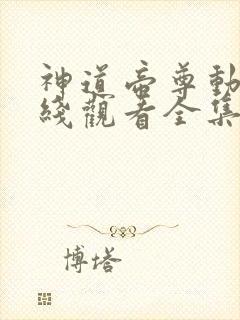 神道帝尊動
綫觀看全集
博塔